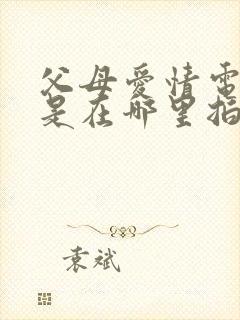 父母爱情電
是在哪里拍
袁斌